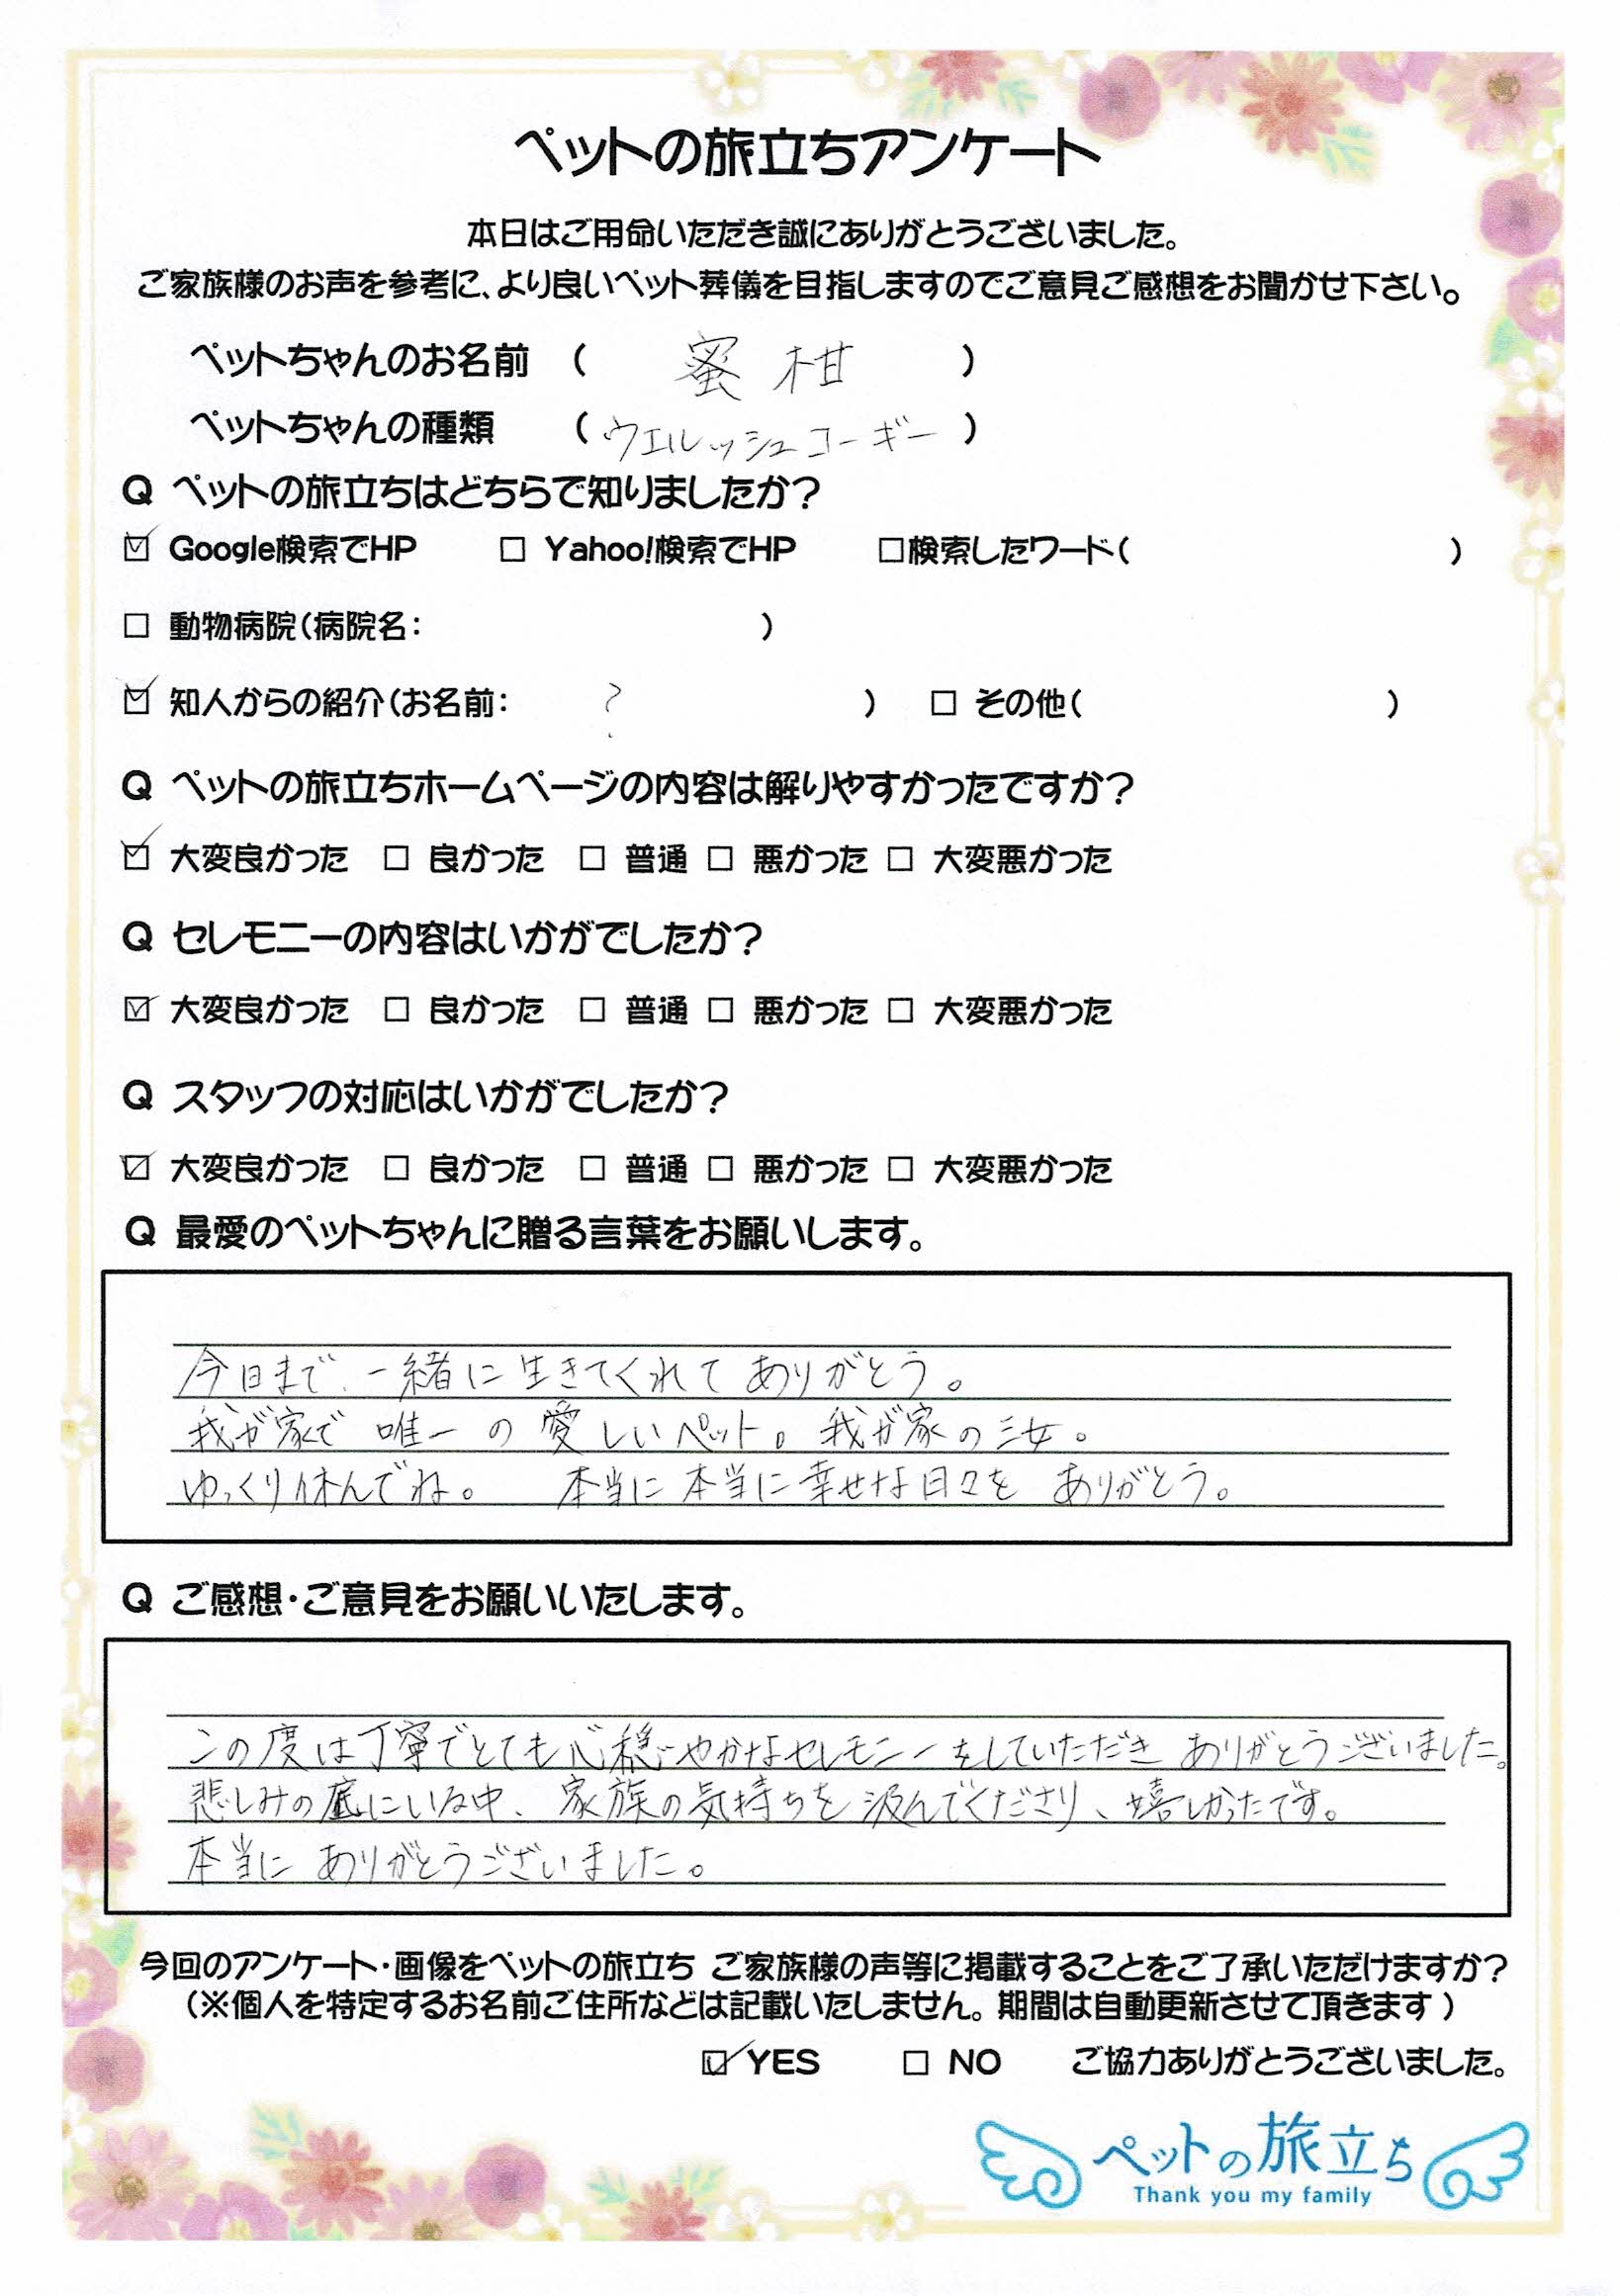 ペットの旅立ちアンケート
本日はご用命いただき誠にありがとうございました。
ご家族様のお声を参考に、より良いペット葬儀を目指しますのでご意見ご感想をお聞かせ下さい。
ペットちゃんのお名前 ( 蜜柑 )
ペットちゃんの種類 ( ウエルッシュコーギー )
Q ペットの旅立ちはどちらで知りましたか?
☑ Google検索でHP □ Yahoo!検索でHP □検索したワード( )
□ 動物病院(病院名: )
☑ 知人からの紹介(お名前: ? ) □ その他( )
Q ペットの旅立ちホームページの内容は解りやすかったですか?
☑ 大変良かった □ 良かった □ 普通 □ 悪かった □ 大変悪かった
Q セレモニーの内容はいかがでしたか?
☑ 大変良かった □ 良かった □ 普通 □ 悪かった □ 大変悪かった
Q スタッフの対応はいかがでしたか?
☑ 大変良かった □ 良かった □ 普通 □ 悪かった □ 大変悪かった
Q 最愛のペットちゃんに贈る言葉をお願いします。
今日まで、一緒に生きてくれてありがとう。
我が家で唯一の愛しいペット。我が家の三女。
ゆっくり休んでね。 本当に本当に幸せな日々を ありがとう。
Q ご感想・ご意見をお願いいたします。
この度は丁寧でとても心穏やかなセレモニーをしていただき ありがとうございました。
悲しみの底にいる中、家族の気持ちを汲んでくださり、嬉しかったです。
本当に ありがとうございました。
今回のアンケート・画像をペットの旅立ち ご家族様の声等に掲載することをご了承いただけますか?
(※個人を特定するお名前ご住所などは記載いたしません。期間は自動更新させて頂きます)
☑ YES □ NO ご協力ありがとうございました。
ペットの旅立ち
Thank you my family